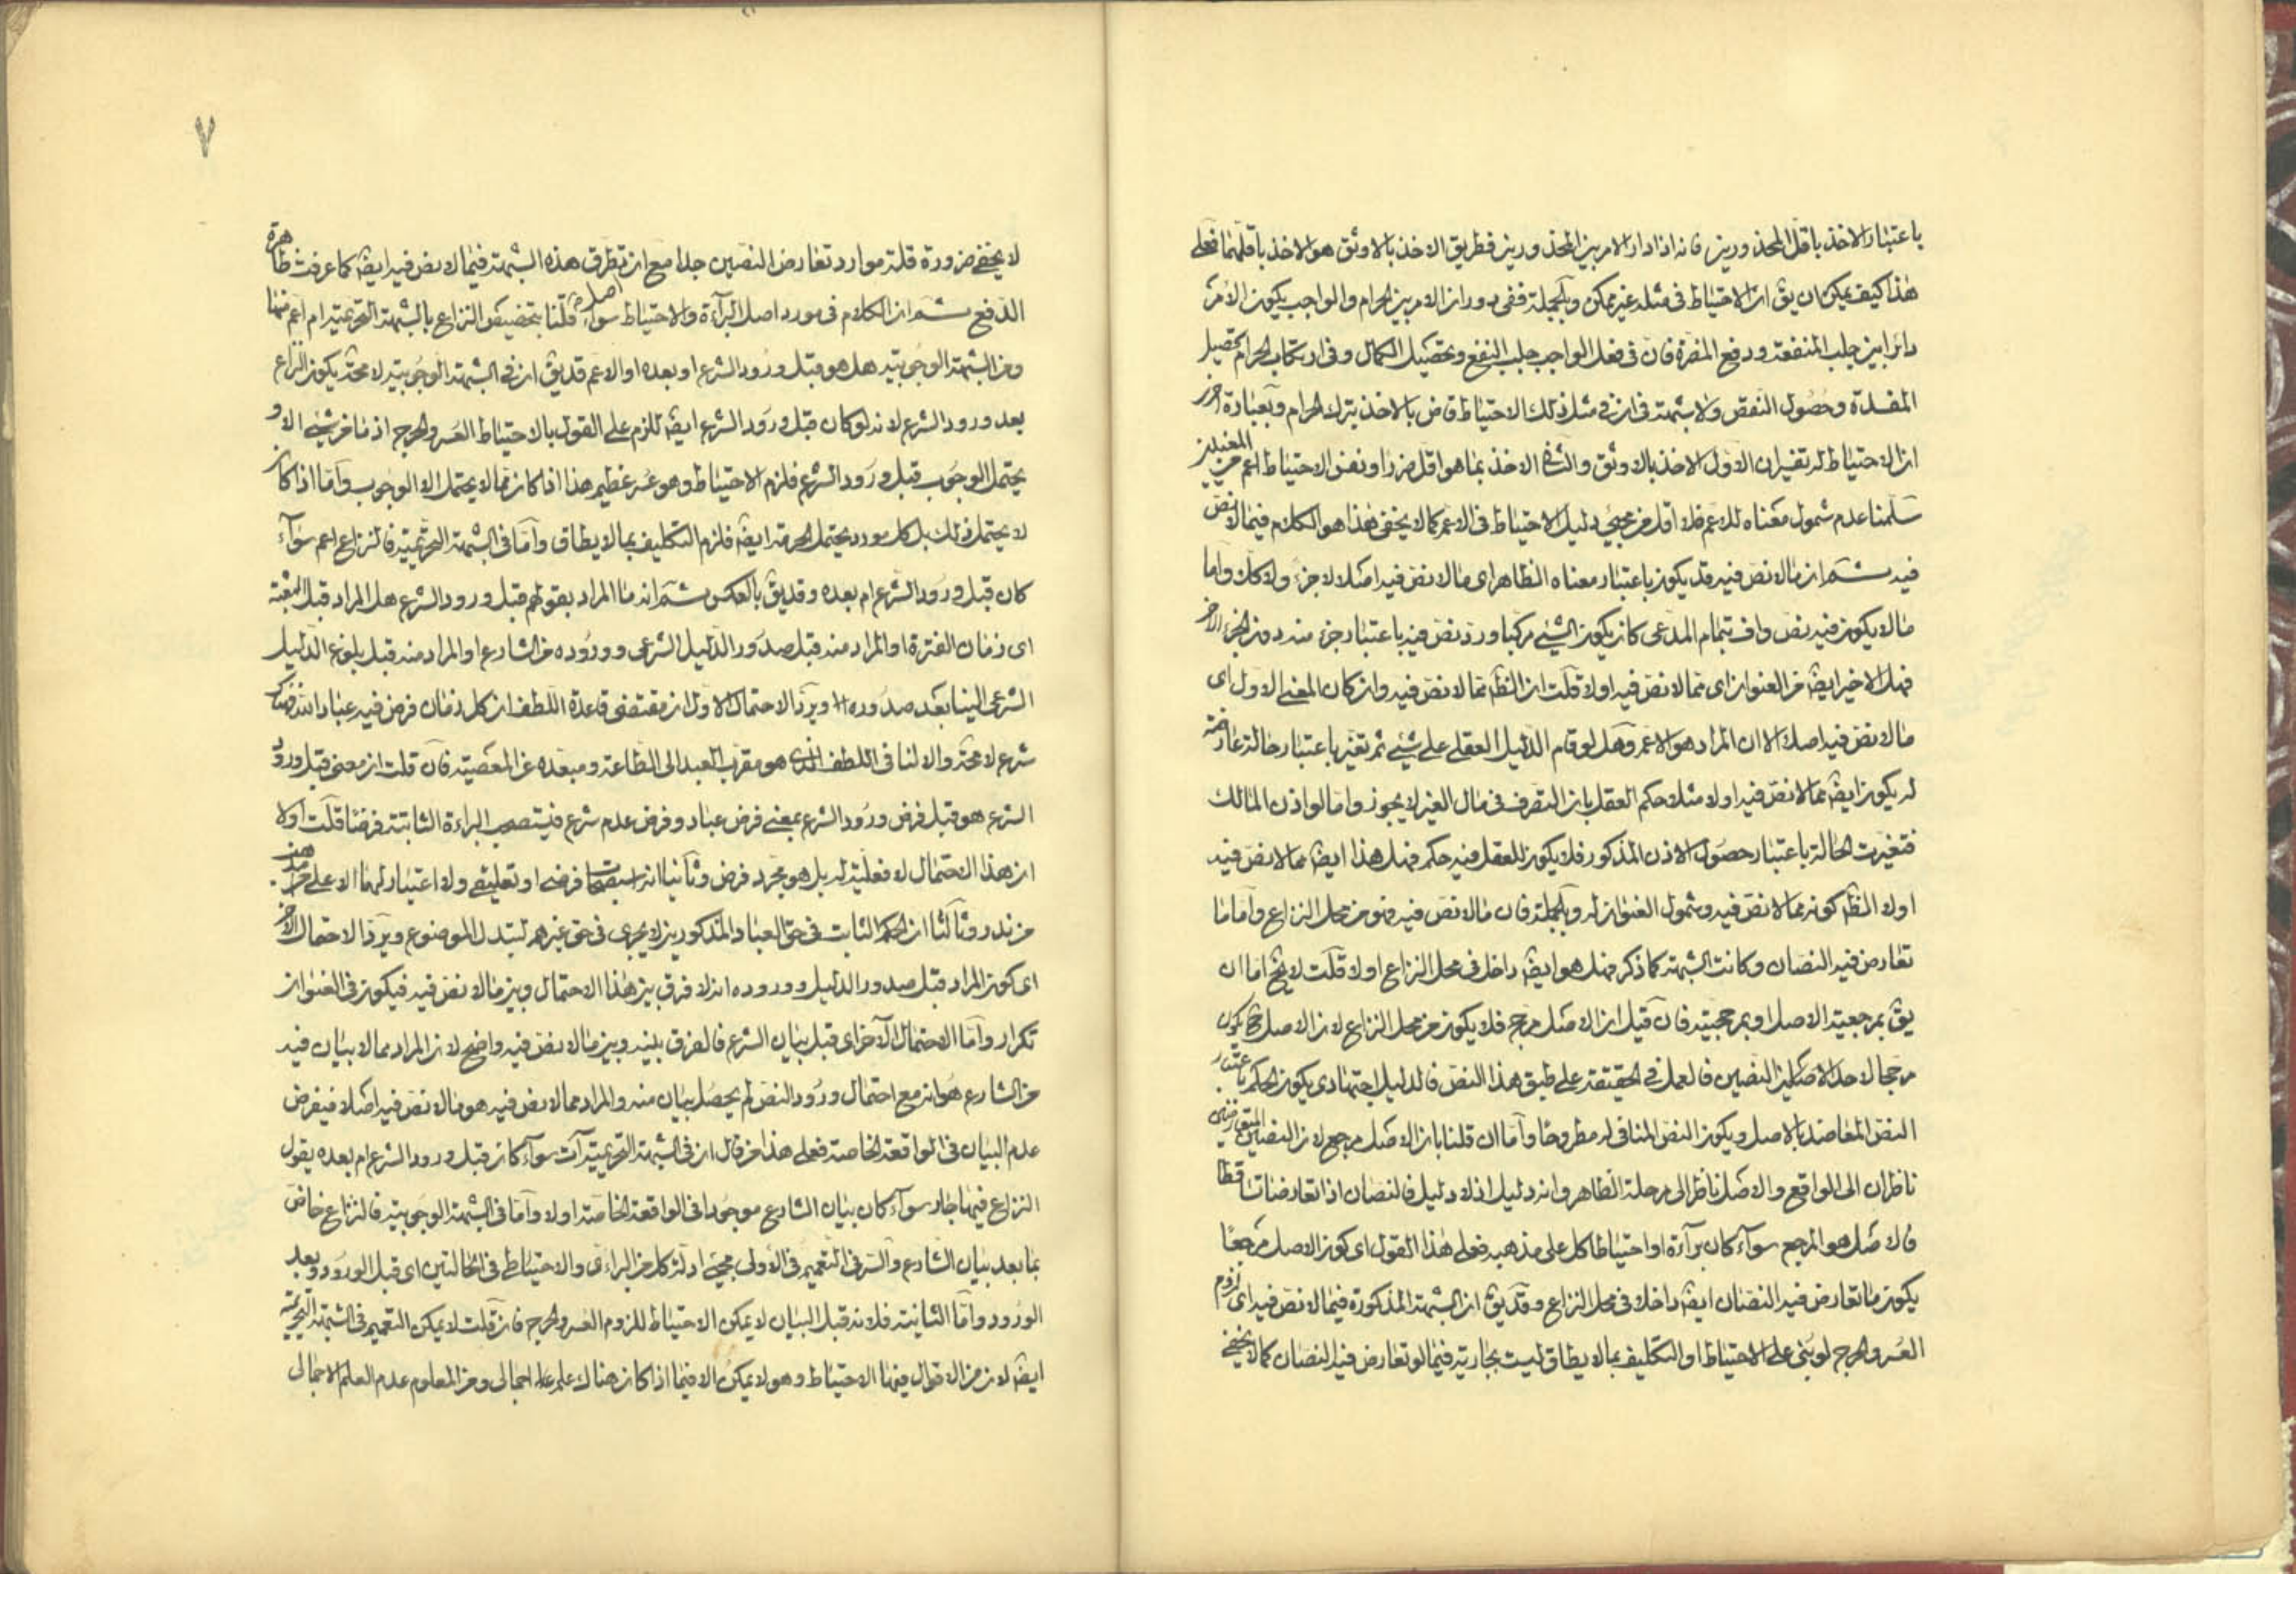 باعتبار الاخذ باقل المحذورين فانه اذا دار الامر بين المحذورين فطريق الاخذ بالاوثق هو الاخذ باقلهما فعلى
هذا كيف يمكن ان يق ان الاحتياط فى مثله غير ممكن وبالجملة ففى دوران الامر بين الحرام والواجب يكون الامر
دائرا بين جلب المنفعة ودفع المضرة فان فى فعل الواجب جلب النفع وتحصيل الكمال وفى ارتكاب الحرام تحصيل
المفسدة وحصول النقص ولا شبهة فى ان فى مثل ذلك الاحتياط قاض بالاخذ بترك الحرام وبعبارة اخرى
ان الاحتياط له تفسيران الاول الاخذ بالاوثق والثانى الاخذ بما هو اقل ضررا ونفس الاحتياط اعم من المعنيين
سلمنا عدم شمول معناه للاعم فلا اقل من مجيئ دليل الاحتياط فى الاعم كما لا يخفى هذا هو الكلام فيما لا نص
فيه ثم ان ما لا نص فيه قد يكون باعتبار معناه الظاهر اى ما لا نص فيه اصلا لا جزء ولا كلا واما
ما لا يكون فيه نص واف بتمام المدعى كان يكون الشيئ مركبا وورد نص فيه باعتبار جزء منه دون الجزء الاخر
فهل الاخير ايضا من العنوان اى مما لا نص فيه اولا قلت ان الظ مما لا نص فيه وان كان المعنى الاول اى
ما لا نص فيه اصلا الا ان المراد هو الاعم وهل لو قام الدليل العقلى على شيئ ثم تغير باعتبار حالة عارضة
له يكون ايضا مما لا نص فيه اولا مثلا حكم العقل بان التصرف فى مال الغير لا يجوز واما لو اذن المالك
فتغيرت الحالة باعتبار حصول الاذن المذكور فلا يكون للعقل فيه حكم فهل هذا ايضا مما لا نص فيه
اولا الظ كونه مما لا نص فيه وشمول العنوان له وبالجملة فان ما لا نص فيه فهو من محل النزاع واما ما
تعارض فيه النصان وكانت الشبهة كما ذكر فهل هو ايضا داخل فى محل النزاع اولا قلت لا يخ اما ان
يق بمرجعية الاصل او بمرجحيته فان قيل ان الاصل مرجح فلا يكون من محل النزاع لان الاصل ح يكون
مرجحا لاحد الاصلين النصين فالعمل فى الحقيقة على طبق هذا النص فالدليل اجتهادى يكون الحكم باعتبار
النص المعاضد بالاصل ويكون النص المنافى له مطروحا واما ان قلنا بان الاصل مرجع لان النصين المتعارضين
ناظران الى الواقع والاصل ناظر الى مرحلة الظاهر وانه دليل اذ لا دليل فالنصان اذا تعارضا تساقطا
فالاصل هو المرجع سواء كان براءة او احتياطا كل على مذهبه فعلى هذا القول اى كون الاصل مرجعا
يكون ما تعارض فيه النصان ايضا داخلا فى محل النزاع وقد يق ان الشبهة المذكورة فيما لا نص فيه اى لزوم
العسر والحرج لو بنى على الاحتياط او التكليف بما لا يطاق ليست بجارية فيما لو تعارض فيه النصان كما لا يخفى
٧
لا يخفى ضرورة قلة موارد تعارض النصين جدا مع ان تطرق هذه الشبهة فيما لا نص فيه ايضا كما عرفت ظاهرة
الدفع ثم ان الكلام فى مورد اصل البرآءة واصل الاحتياط سواء قلنا بتخصيص النزاع بالشبهة التحريمية ام اعم منها
ومن الشبهة الوجوبية هل هو قبل ورود الشرع او بعده او الاعم قد يق ان فى الشبهة الوجوبية لا محة يكون النزاع
بعد ورود الشرع لانه لو كان قبل ورود الشرع ايضا للزم على القول بالاحتياط العسر والحرج اذ ما من شيئ الا و
يحتمل الوجوب قبل ورود الشرع فلزم الاحتياط وهو عسر عظيم هذا اذا كان مما لا يحتمل الا الوجوب واما اذا كان
لا يحتمل ذلك بل كل مورد يحتمل الحرمة ايضا فلزم التكليف بما لا يطاق واما فى الشبهة التحريمية فالنزاع اعم سواء
كان قبل ورود الشرع ام بعده وقد يق بالعكس ثم انه ما المراد بقولهم قبل ورود الشرع هل المراد قبل البعثة
اى زمان الفترة او المراد منه قبل صدور الدليل الشرعى ووروده من الشارع او المراد منه قبل بلوغ الدليل
الشرعى الينا بعد صدوره ويرد الاحتمال الاول ان مقتضى قاعدة اللطف ان كل زمان فرض فيه عباد الله فهناك
شرع لا محة والا لنافى اللطف الذى هو مقرب العبد الى الطاعة ومبعده عن المعصية فان قلت ان معنى قبل ورود
الشرع هو قبل فرض ورود الشرع بمعنى فرض عباد وفرض عدم شرع فيستصحب البراءة الثابتة فرضا قلت اولا
ان هذا الاحتمال لا فعلية له بل هو مجرد فرض وثانيا انه استصحاب فرضى او تعليقى ولا اعتبار لهما الا على مذهب
من ندر وثالثا ان الحكم الثابت فى حق العباد المذكورين لا يجرى فى حق غيرهم لتبدل الموضوع ويرد الاحتمال الاخر
اى كون المراد قبل صدور الدليل ووروده انه لا فرق بين هذا الاحتمال وبين ما لا نص فيه فيكون فى العنوان
تكرار واما الاحتمال الآخر اى قبل بيان الشرع فالفرق بينه وبين ما لا نص فيه واضح لان المراد مما لا بيان فيه
من الشارع هو انه مع احتمال ورود النص لم يحصل بيان منه والمراد مما لا نص فيه هو ما لا نص فيه اصلا فيفرض
عدم البيان فى الواقعة الخاصة فعلى هذا من قال ان فى الشبهة التحريمية آت سواء كان قبل ورود الشرع ام بعده يقول
النزاع فيها جار سواء كان بيان الشارع موجودا فى الواقعة الخاصة اولا واما فى الشبهة الوجوبية فالنزاع خاص
بما بعد بيان الشارع والسر فى التعميم فى الاولى مجيئ ادلة كل من البراءة والاحتياط فى الحالتين اى قبل الورود وبعد
الورود واما الثانية فلانه قبل البيان لا يمكن الاحتياط للزوم العسر والحرج فان قلت لا يمكن التعميم فى الشبهة التحريمية
ايضا لان من الاقوال فيها الاحتياط وهو لا يمكن الا فيما اذا كان هناك علم اجمالى ومن المعلوم عدم العلم الاجمالى